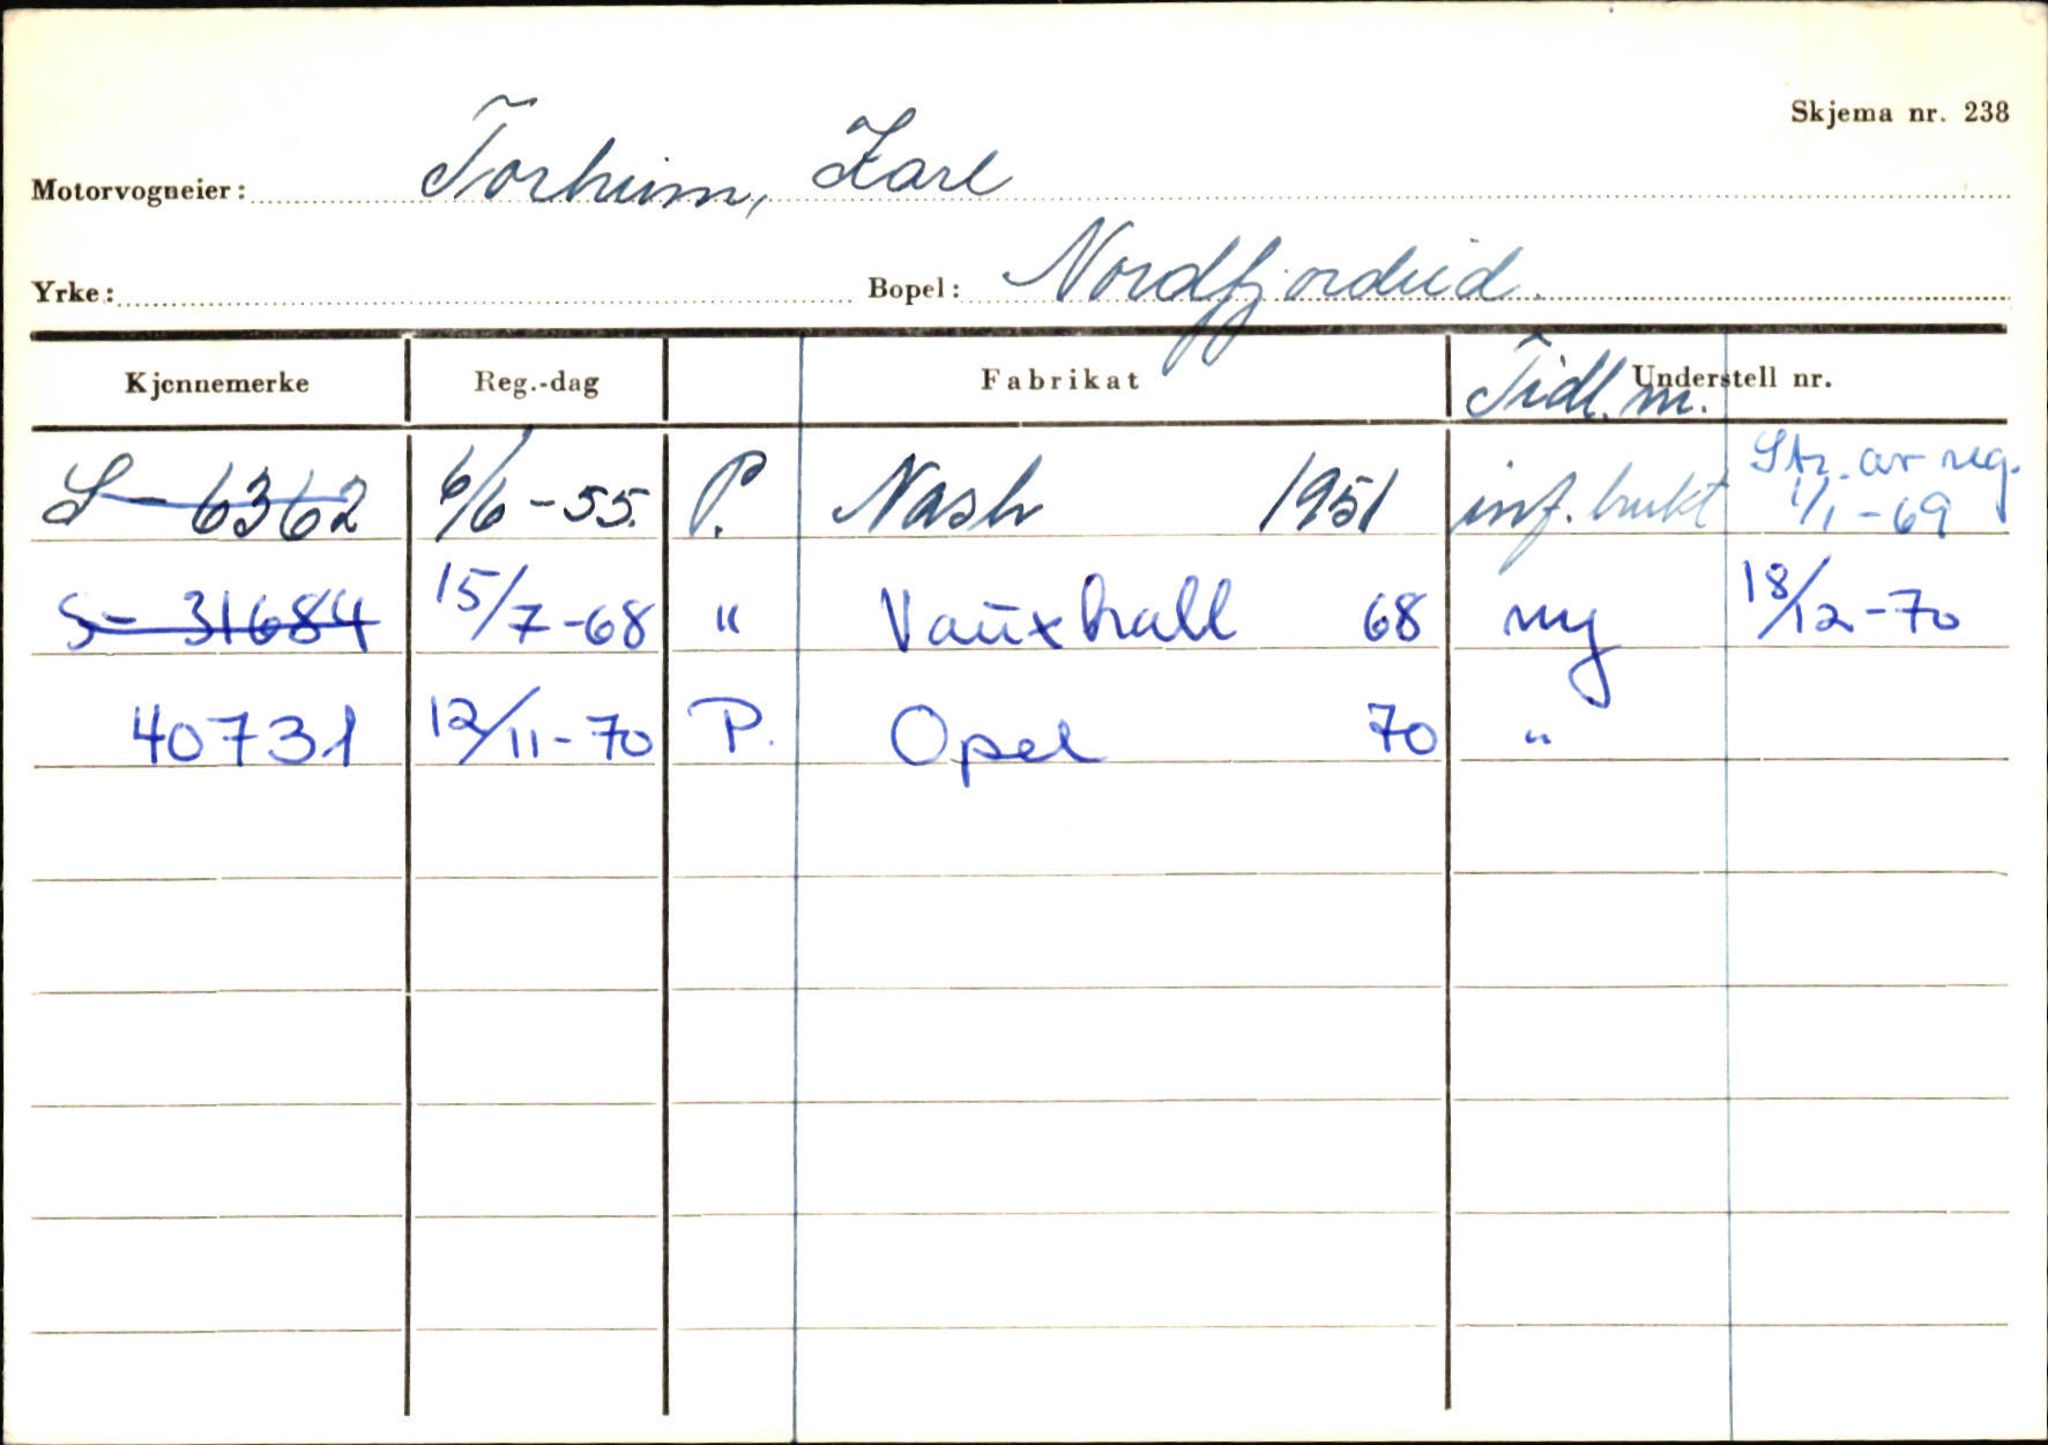 Skjema nr. 238
Motorvogneier: Torheim, Karl
Yrke: Bopel: Nordfjordeid.
Kjennemerke Reg.-dag Fabrikat Tidl. m. Understell nr.
S - 6362 6/6 - 55. P. Nash 1951 inf. brukt Str. av reg. 1/1 - 69
S - 31684 15/7 - 68 " Vauxhall 68 ny 18/12 - 70
40731 12/11 - 70 P. Opel 70 "